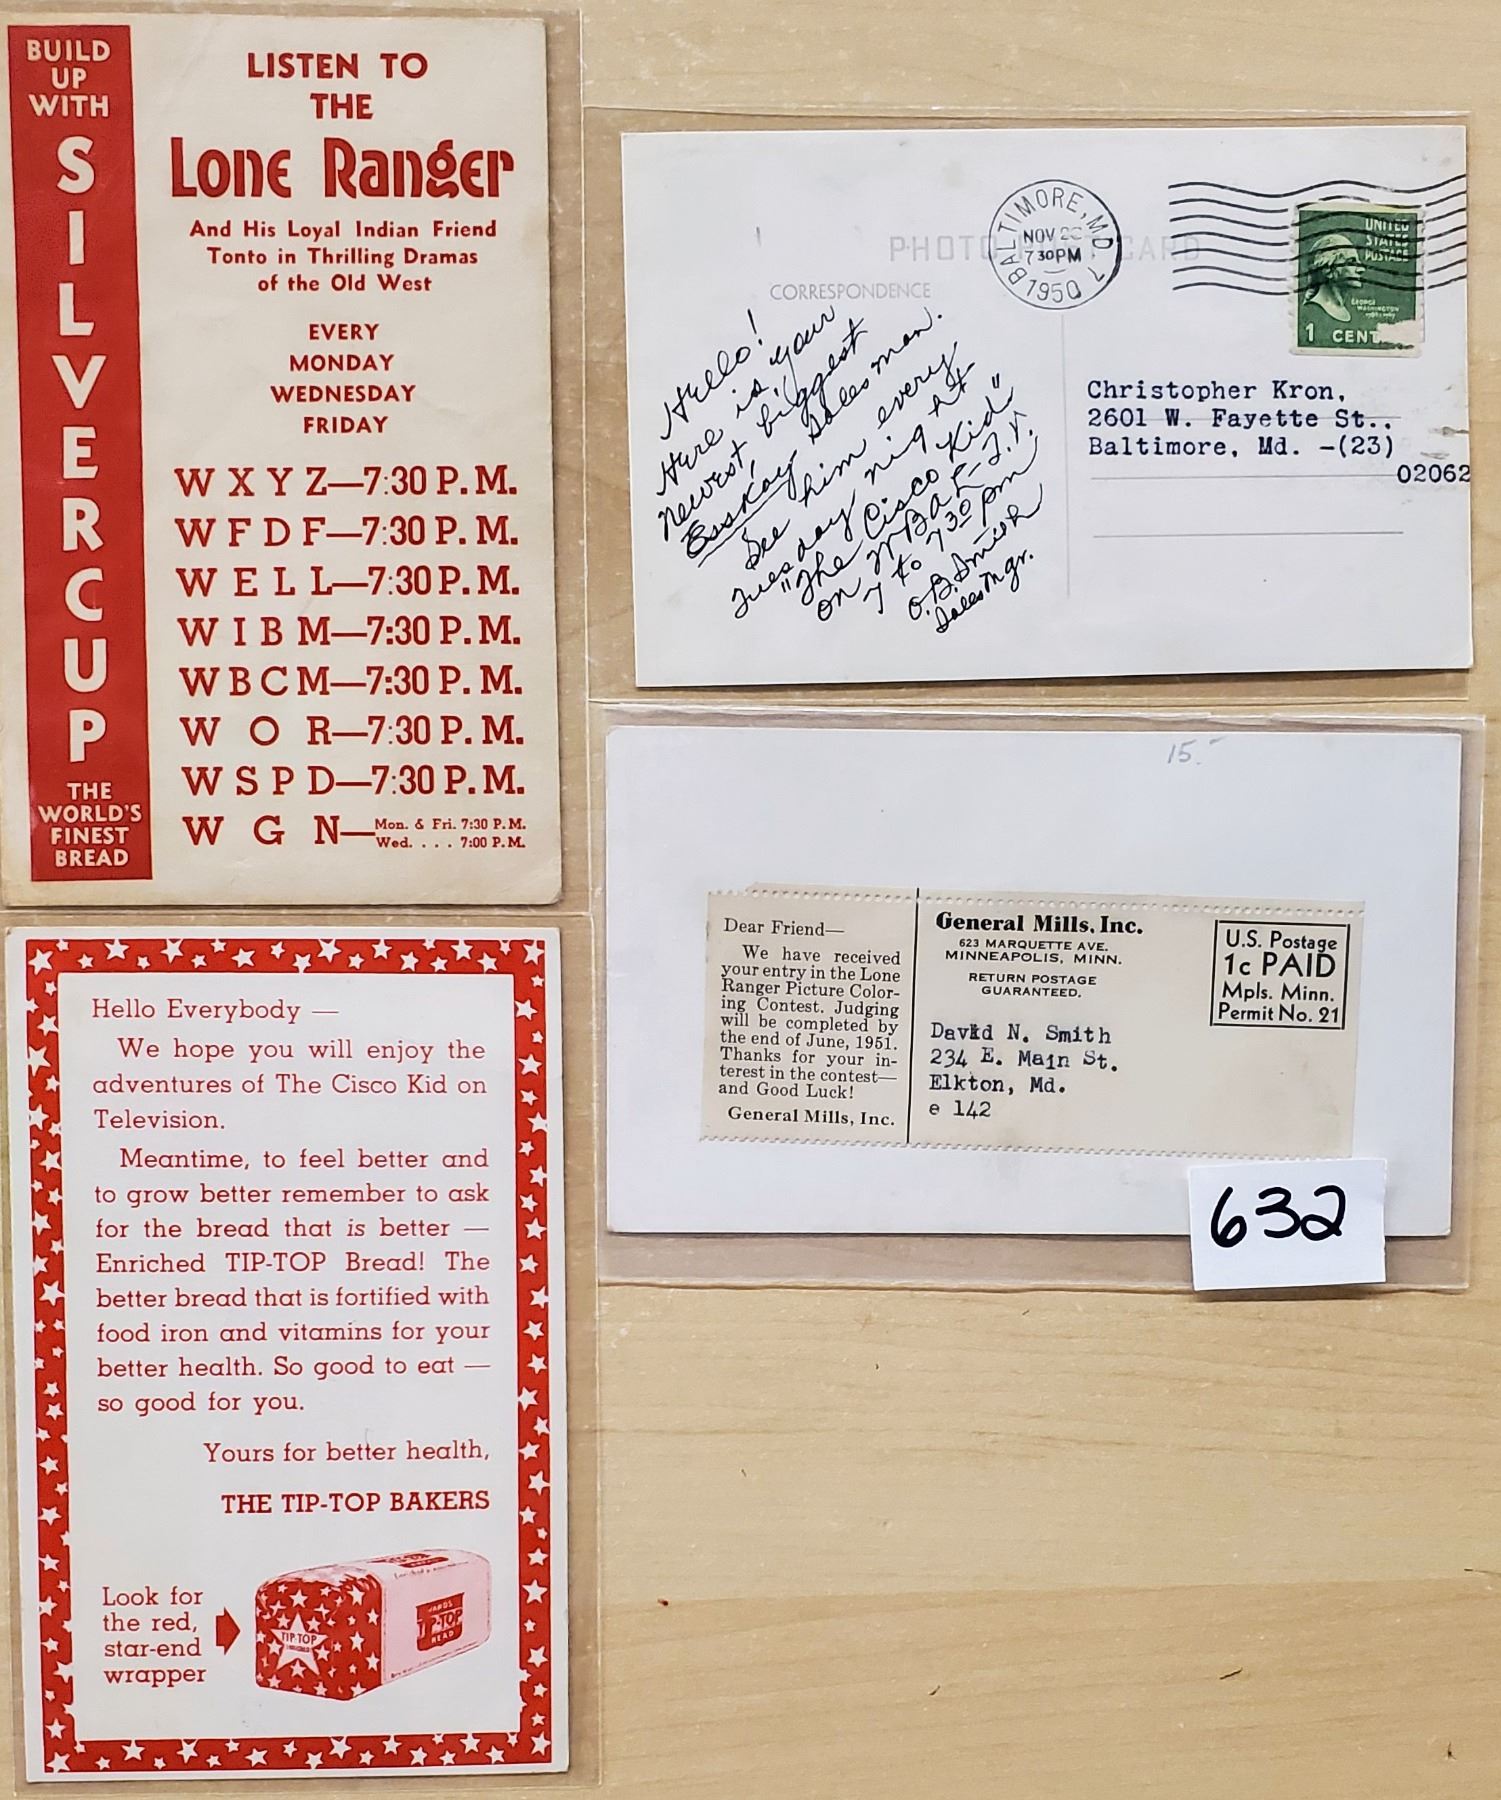 BUILD
UP
WITH
SILVERCUP
THE
WORLD'S
FINEST
BREAD
LISTEN TO
THE
Lone Ranger
And His Loyal Indian Friend
Tonto in Thrilling Dramas
of the Old West
EVERY
MONDAY
WEDNESDAY
FRIDAY
WXYZ—7:30 P.M.
WFDF—7:30 P.M.
WELL—7:30 P.M.
WIBM—7:30 P.M.
WBCM—7:30 P.M.
WOR—7:30 P.M.
WSPD—7:30 P.M.
WGN—Mon. & Fri. 7:30 P.M.
Wed. . . . 7:00 P.M.
PHOTO POST CARD
CORRESPONDENCE
BALTIMORE, MD.
NOV
7 30 PM
1950
UNITED
STATES
POSTAGE
GEORGE
WASHINGTON
1 CENT
Hello!
Here is your
newest, biggest
Esskay Salesman.
See him every
Tuesday night
"The Cisco Kid"
on WBAL-T.V.
7 to 7 30 pm
O.B. Smith
Sales Mgr.
Christopher Kron,
2601 W. Fayette St.,
Baltimore, Md. -(23)
02062
15.-
Dear Friend—
We have received
your entry in the Lone
Ranger Picture Color-
ing Contest. Judging
will be completed by
the end of June, 1951.
Thanks for your in-
terest in the contest—
and Good Luck!
General Mills, Inc.
General Mills, Inc.
623 MARQUETTE AVE.
MINNEAPOLIS, MINN.
RETURN POSTAGE
GUARANTEED.
U.S. Postage
1c PAID
Mpls. Minn.
Permit No. 21
David N. Smith
234 E. Main St.
Elkton, Md.
e 142
632
Hello Everybody —
We hope you will enjoy the
adventures of The Cisco Kid on
Television.
Meantime, to feel better and
to grow better remember to ask
for the bread that is better —
Enriched TIP-TOP Bread! The
better bread that is fortified with
food iron and vitamins for your
better health. So good to eat —
so good for you.
Yours for better health,
THE TIP-TOP BAKERS
Look for
the red,
star-end
wrapper
TIP-TOP
WARDS
TIP-TOP
BREAD